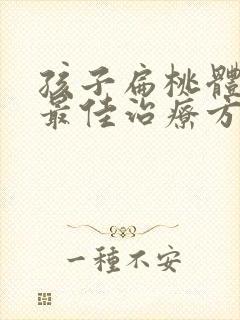 孩子扁桃體
最佳治療方
一種不安